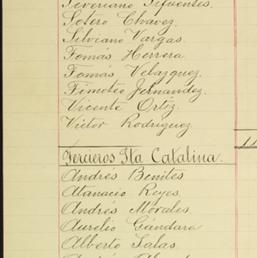 Severiano Sifuentes.
Sotero Chavez.
Silviano Vargas.
Tomás Herrera
Tomás Velazquez.
Timoteo Jernandez.
Vicente Ortiz.
Victor Rodriguez
Terceros Sta Catalina.
Andrés Benites
Atanacio Reyes.
Andrés Morales.
Aurelio Gandara
Alberto Salas.